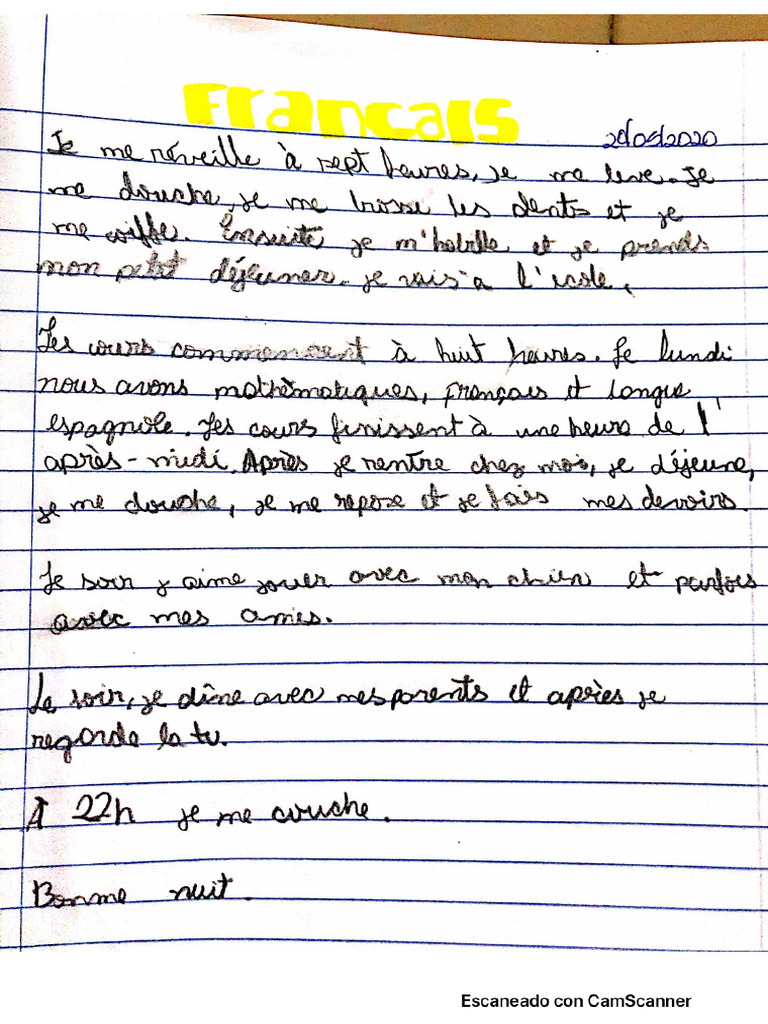 Francais
Je me réveille à sept heures, je me leve. Je
me douche, je me brosse les dents et je
me coiffe. Ensuite je m'habille et je prends
mon petit déjeuner. je vais à l'école.
Les cours commencent à huit heures. Le lundi
nous avons mathématiques, français et langue
espagnole. Les cours finissent à une heure de l'
après-midi. Après je rentre chez moi, je déjeune,
je me douche, je me repose et je fais mes devoirs.
Le soir j'aime jouer avec mon chien et parfois
avec mes amis.
Le soir, je dîne avec mes parents et après je
regarde la tv.
A 22h je me couche.
Bonne nuit.
Escaneado con CamScanner